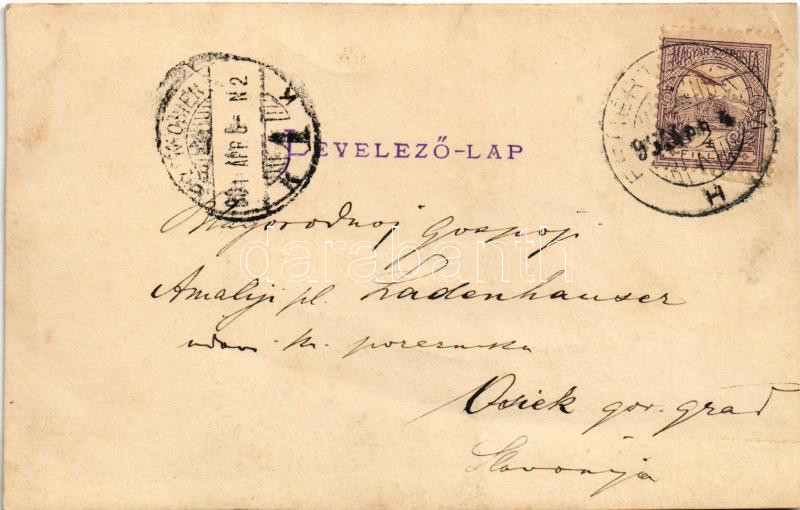 MAGYAR KIR. POSTA
901 APR 5 N2
LEVELEZŐ-LAP
Blagorodnoj gospoji
Amaliji pl. Ladenhauser
udov. kr. poreznika
Osiek gor. grad
Slavonija
darabanth